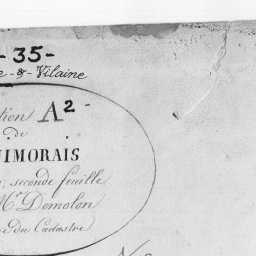 -35-
e-&-Vilaine
tion A²
de
IMORAIS
seconde feuille
Mr Demolon
du Cadastre